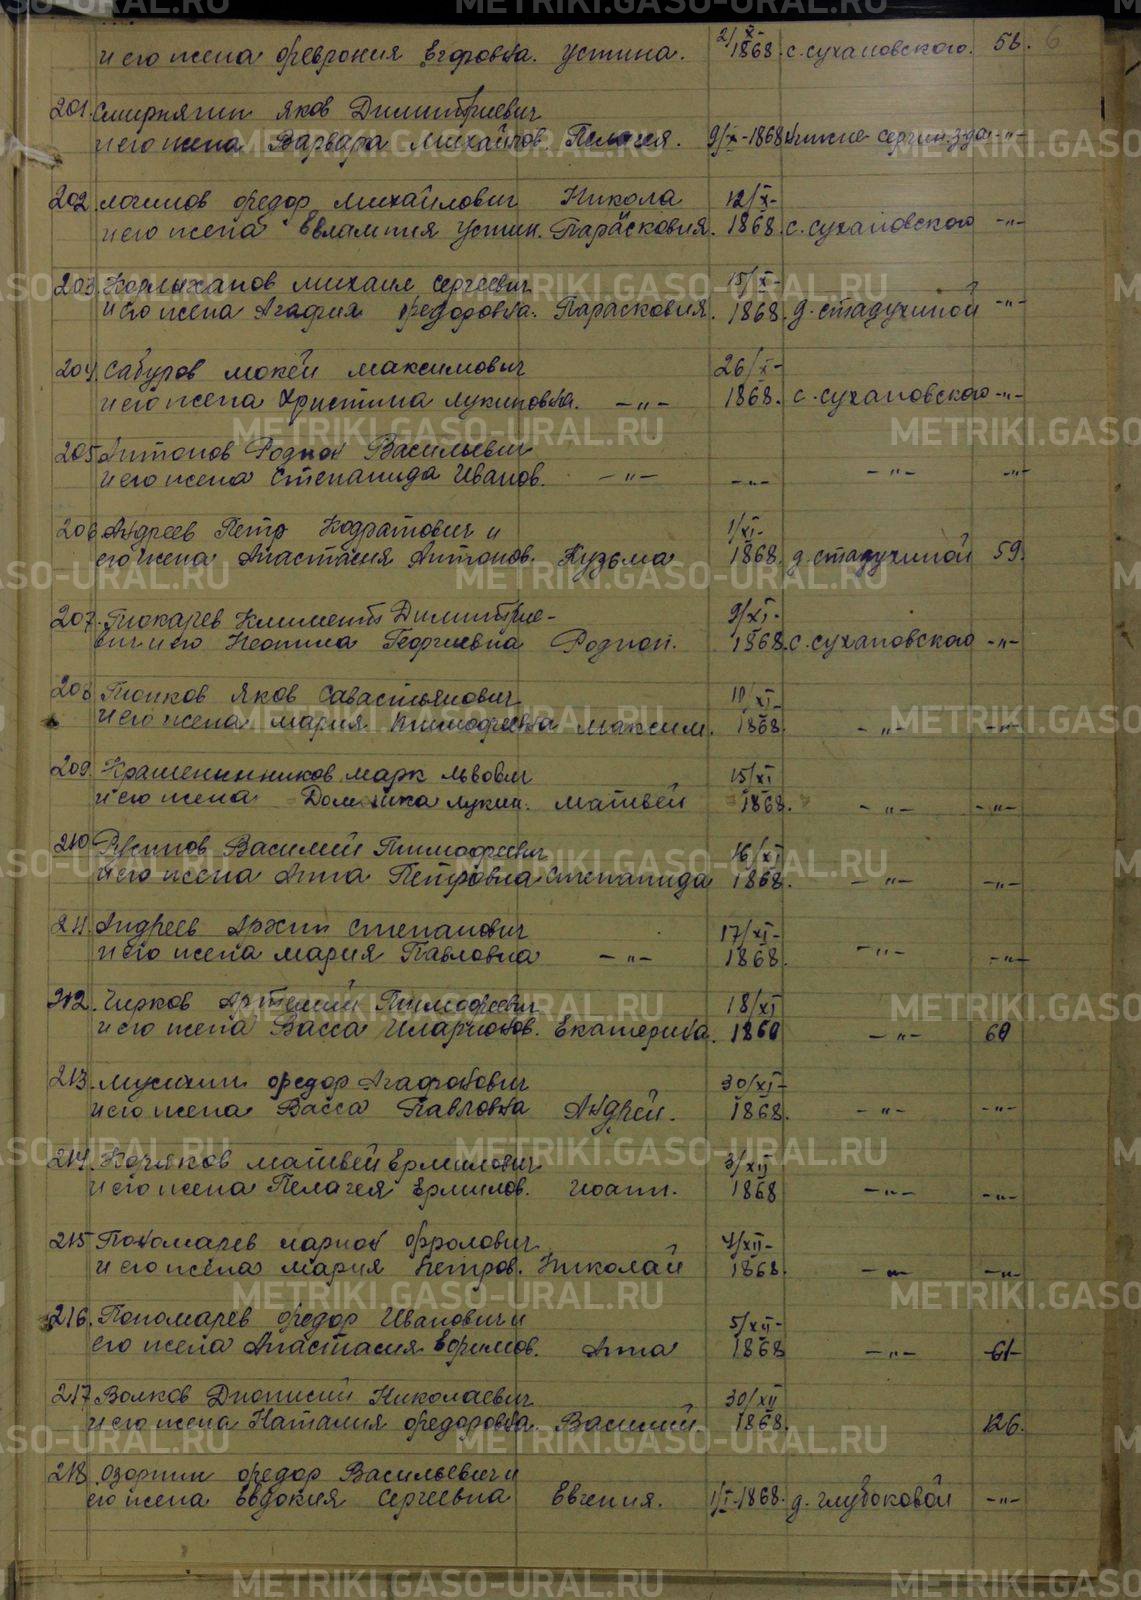 2/X-
и его жена Феврония Егоровна. Устина. 1868. с. сухановского. 58. 6
201. Смирнягин Яков Димитриевич
и его жена Варвара Михайлов. Пелагея. 9/X-1868 Нижне-Сергин. з-да -"-
202. Логинов Федор Михайлович Никола 12/X-
и его жена Евлампия Устин. Парасковия. 1868. с. сухановского -"-
203. Кормыханов Михаил Сергеевич 15/X-
и его жена Агафия Федоровна. Парасковия. 1868. д. стадухиной -"-
204. Сабуров Мокей Максимович 26/X-
и его жена Христина Лукиновна. -"- 1868. с. сухановского -"-
205. Антонов Родион Васильевич
и его жена Степанида Иванов. -"- -"- -"- -"-
206. Андреев Петр Кодратович и 1/XI-
его жена Анастасия Антонов. Кузьма 1868. д. стадухиной 59.
207. Токарев Климент Димитрие- 9/XI-
вич и его Неонила Георгиевна Родион. 1868. с. сухановского -"-
208. Тонков Яков Савастьянович XI-
и его жена Мария Тимофеевна Максим. 1868. -"- -"-
209. Крашенинников Марк Львович 15/XI
и его жена Домника Лукин. Матвей 1868. -"- -"-
210. Василий Тимофеевич 16/XI
и его жена Анна Петровна Степанида 1868. -"- -"-
211. Андреев Архип Степанович 17/XI-
и его жена Мария Павловна -"- 1868. -"- -"-
212. Чирков Артемий Тимофеевич 18/XI
и его жена Васса Иларионов. Екатерина. 1868 -"- 60
213. Мусихин Федор Агафонович 30/XI-
и его жена Васса Павловна Андрей. 1868. -"- -"-
214. Матвей Ермилович 3/XII
и его жена Пелагея Ермилов. Иоанн. 1868 -"- -"-
215. Пономарев Ларион Фролович 4/XII-
и его жена Мария Петров. Николай 1868. -"- -"-
216. Пономарев Федор Иванович и 5/XII-
его жена Анастасия Ефимов. Анна 1868 -"- 61
217. Волков Дионисий Николаевич 30/XII
и его жена Наталия Федоровна. Василий. 1868. 126.
218. Озорнин Федор Васильевич и
его жена Евдокия Сергеевна Евгения. 1/I-1868. д. глубоковой -"-
METRIKI.GASO-URAL.RU